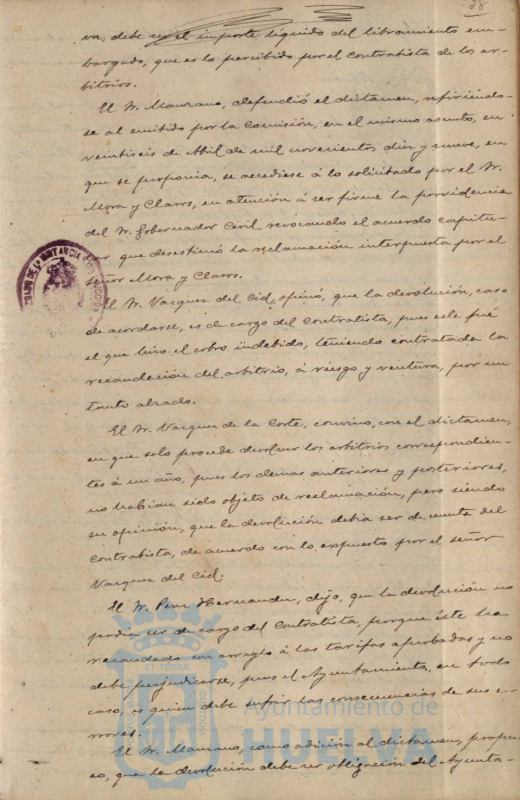 28
va, debe ser el importe líquido del libramiento em-
bargado, que es lo percibido por el contratista de los ar-
bitrios.
El Sr. Manzano, defendió el dictamen, refiriéndo-
se al emitido por la Comisión, en el mismo asunto, en
veintiséis de Abril de mil novecientos diez y nueve, en
que se proponía, se accediese á lo solicitado por el Sr.
Mora y Claros, en atención á ser firme la providencia
del Sr. Gobernador Civil, revocando el acuerdo capitu-
lar que desestimó la reclamación interpuesta por el
señor Mora y Claros.
El Sr. Vazquez del Cid, opinó, que la devolución, caso
de acordarse, es de cargo del Contratista, pues este fué
el que hizo el cobro indebido, teniendo contratada la
recaudación del arbitrio, á riesgo y ventura, por un
tanto alzado.
El Sr. Vazquez de la Corte, convino, con el dictamen,
en que solo procede devolver los arbitrios correspondien-
tes á un año, pues los demas anteriores y posteriores,
no habian sido objeto de reclamación, pero siendo
su opinión, que la devolución debia ser de cuenta del
contratista, de acuerdo con lo expuesto por el señor
Vazquez del Cid.
El Sr. Perez Hernandez, dijo, que la devolución no
podia ser de cargo del Contratista, porque éste ha
recaudado con arreglo á las tarifas aprobadas y no
debe perjudicarse, pues el Ayuntamiento, en todo
caso, es quien debe sufrir las consecuencias de sus e-
rrores.
El Sr. Manzano, como adición al dictamen, propu-
so, que la devolución debe ser obligación del Ayunta-
Ayuntamiento de
HUELVA